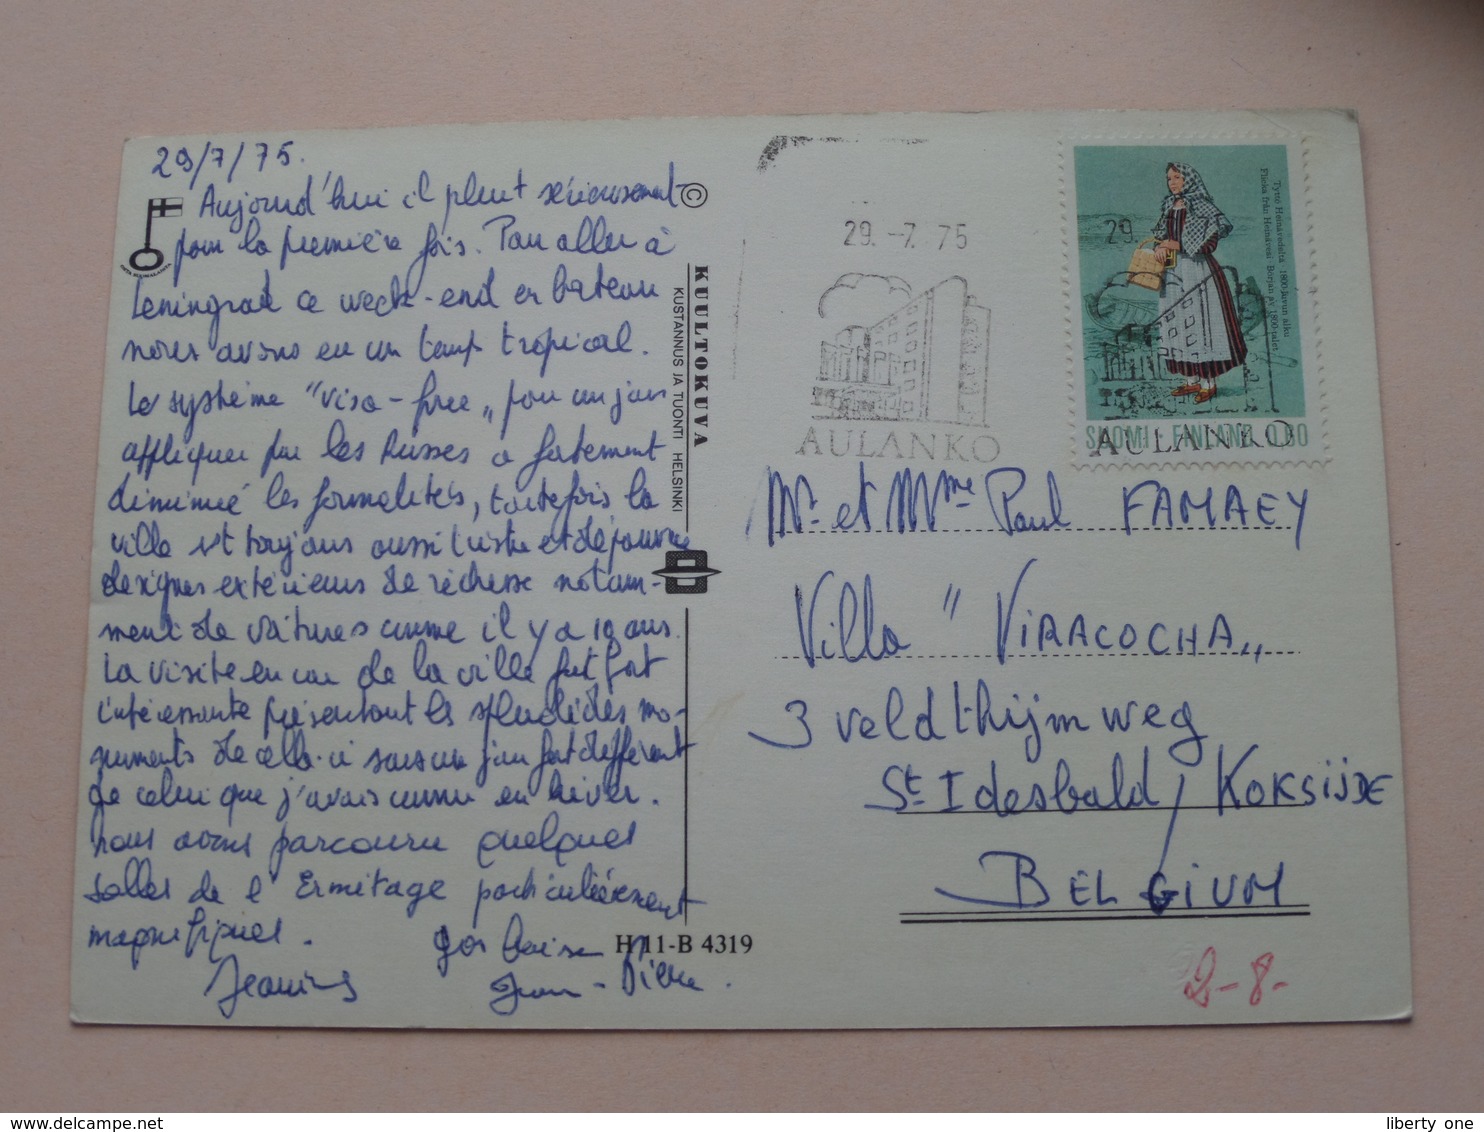 29/7/75.
Aujourd'hui il pleut sérieusement
pour la première fois. Pour aller à
Leningrad ce week-end en bateau
nous avons eu un temps tropical.
Le système "visa-free" pour un jour
appliqué par les Russes a fortement
diminué les formalités, toutefois la
ville est toujours aussi triste et dépourvue
de signes extérieurs de richesse notam-
ment de voitures comme il y a 10 ans.
La visite en car de la ville fut fort
intéressante présentant les splendides mo-
numents de celle-ci sous un jour fort différent
de celui que j'avais connu en hiver.
nous avons parcouru quelques
salles de l'Ermitage particulièrement
magnifiques.
Gros baisers
Jean-Pierre.
©
KUULTOKUVA
KUSTANNUS JA TUONTI HELSINKI
H 11-B 4319
29.-7. 75
AULANKO
29.
Tyttö Heinävedeltä 1800-luvun alku
Flicka från Heinävesi Början av 1800-talet
SUOMI FINLAND 0,80
AULANKO
Mr et Mme Paul FAMAEY
Villa "VIRACOCHA"
3 veldthijmweg
St Idesbald / KOKSIJDE
BELGIUM
2-8-
liberty one